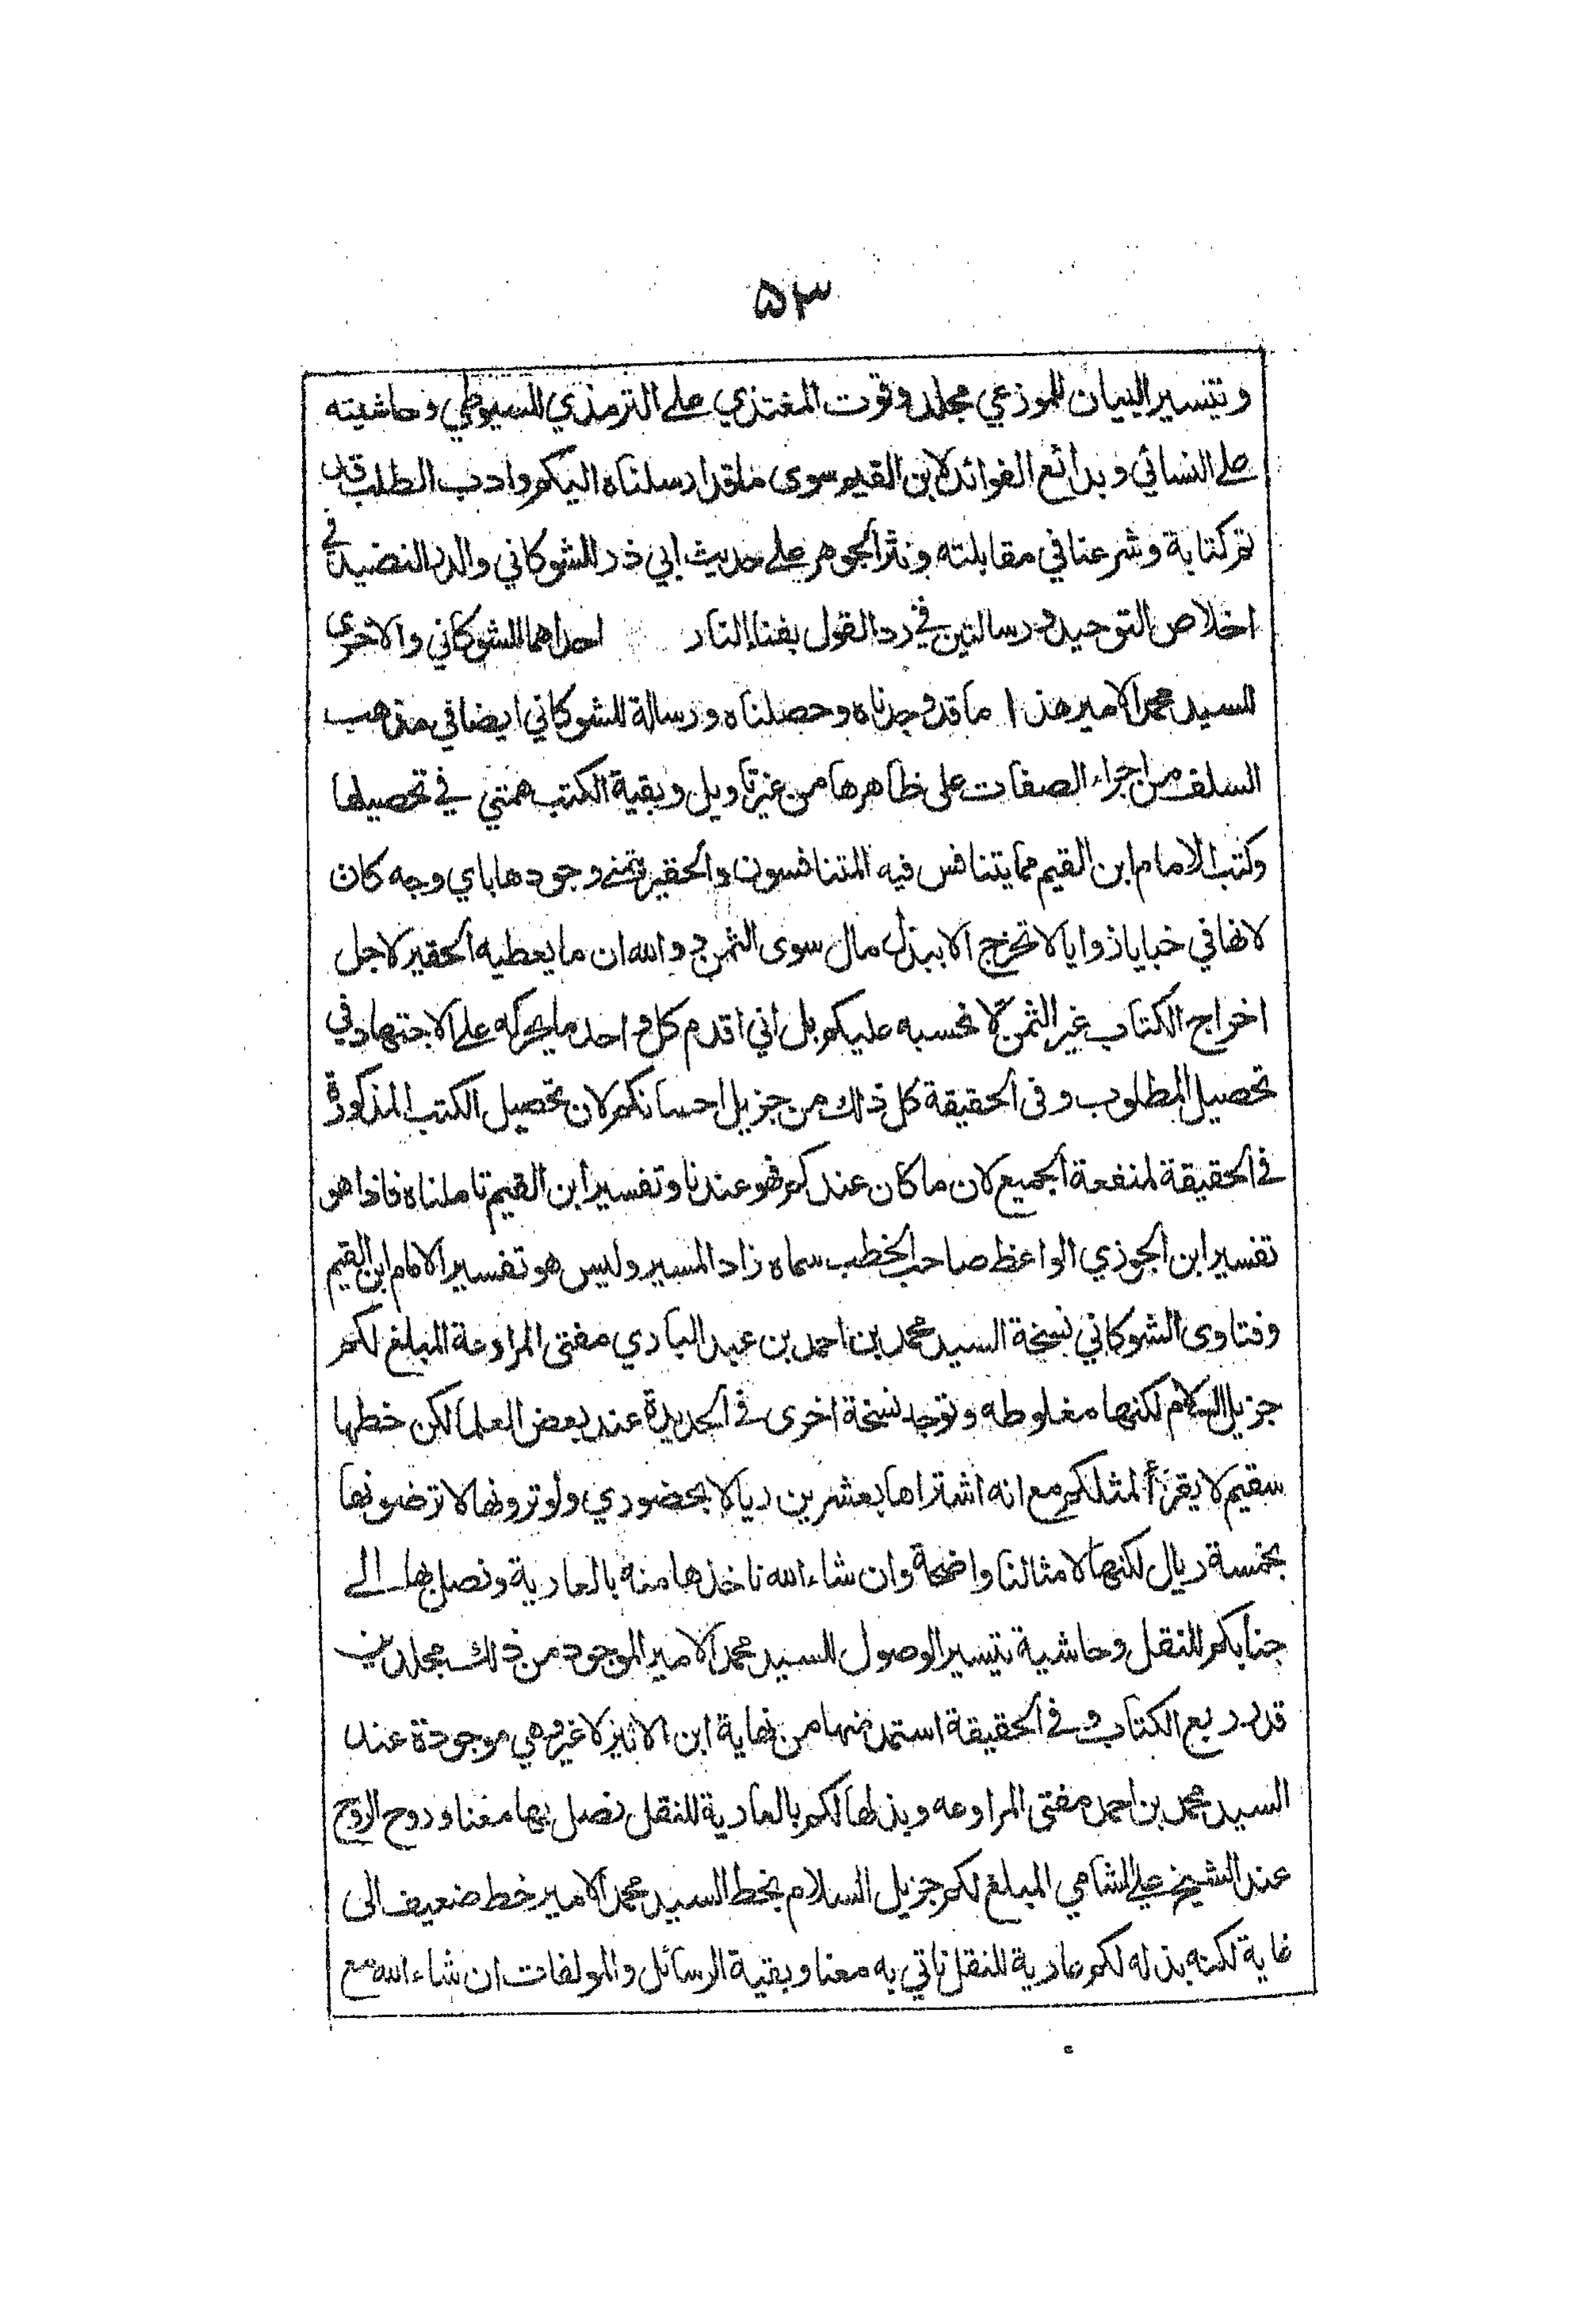 ۵۳
وتيسير البيان للموزعي مجلد وقوت المغتذي على الترمذي للسيوطي وحاشيته
على النسائي وبدائع الفوائد لابن القيم سوى ما قد ارسلناه اليكم وادب الطلب قد
تم كتابة وشرعنا في مقابلته ونثر الجوهر على حديث ابي ذر للشوكاني والدر النضيد في
اخلاص التوحيد ورسالتين في رد القول بفناء النار احداهما للشوكاني والاخرى
للسيد محمد الامير هذا ما قد وجدناه وحصلناه ورسالة للشوكاني ايضا في مذهب
السلف من اجراء الصفات على ظاهرها من غير تاويل وبقية الكتب همتي في تحصيلها
وكتب الامام ابن القيم مما يتنافس فيه المتنافسون والحقير يتمنى وجودها باي وجه كان
لانها في خبايا زوايا لا تخرج الا ببذل مال سوى الثمن و والله ان ما يعطيه الحقير لاجل
اخراج الكتاب غير الثمن لا نحسبه عليكم بل اني اقدم كل واحد ما يحركه على الاجتهاد في
تحصيل المطلوب وفى الحقيقة كل ذلك من جزيل احسانكم لان تحصيل الكتب المذكورة
في الحقيقة لمنفعة الجميع لان ما كان عندكم فهو عندنا وتفسير ابن القيم تاملناه فاذا هو
تفسير ابن الجوزي الواعظ صاحب الخطب سماه زاد المسير وليس هو تفسير الامام ابن القيم
وفتاوى الشوكاني نسخة السيد محمد بن احمد بن عبد الباري مفتى المراوعة المبلغ لكم
جزيل السلام لكنها مغلوطه وتوجد نسخة اخرى في الحديدة عند بعض العلما لكن خطها
سقيم لا يقرأ لمثلكم مع انه اشتراها بعشرين ريالا بحضوري ولو ترونها لا ترضونها
بخمسة ريال لكنها لامثالنا واضحة وان شاء الله ناخذها منه بالعارية ونصل بها الى
جنابكم للنقل وحاشية تيسير الوصول للسيد محمد الامير الموجود من ذلك مجلدين
قدر ربع الكتاب وفي الحقيقة استمد منها من نهاية ابن الاثير لا غير وهي موجودة عند
السيد محمد بن احمد مفتى المراوعه وبذلها لكم بالعارية للنقل نصل بها معنا وروح الروح
عند الشيخ علي الشامي المبلغ لكم جزيل السلام بخط السيد محمد الامير خط ضعيف الى
غاية لكنه بذله لكم عارية للنقل ناتي به معنا وبقية الرسائل والمولفات ان شاء الله مع